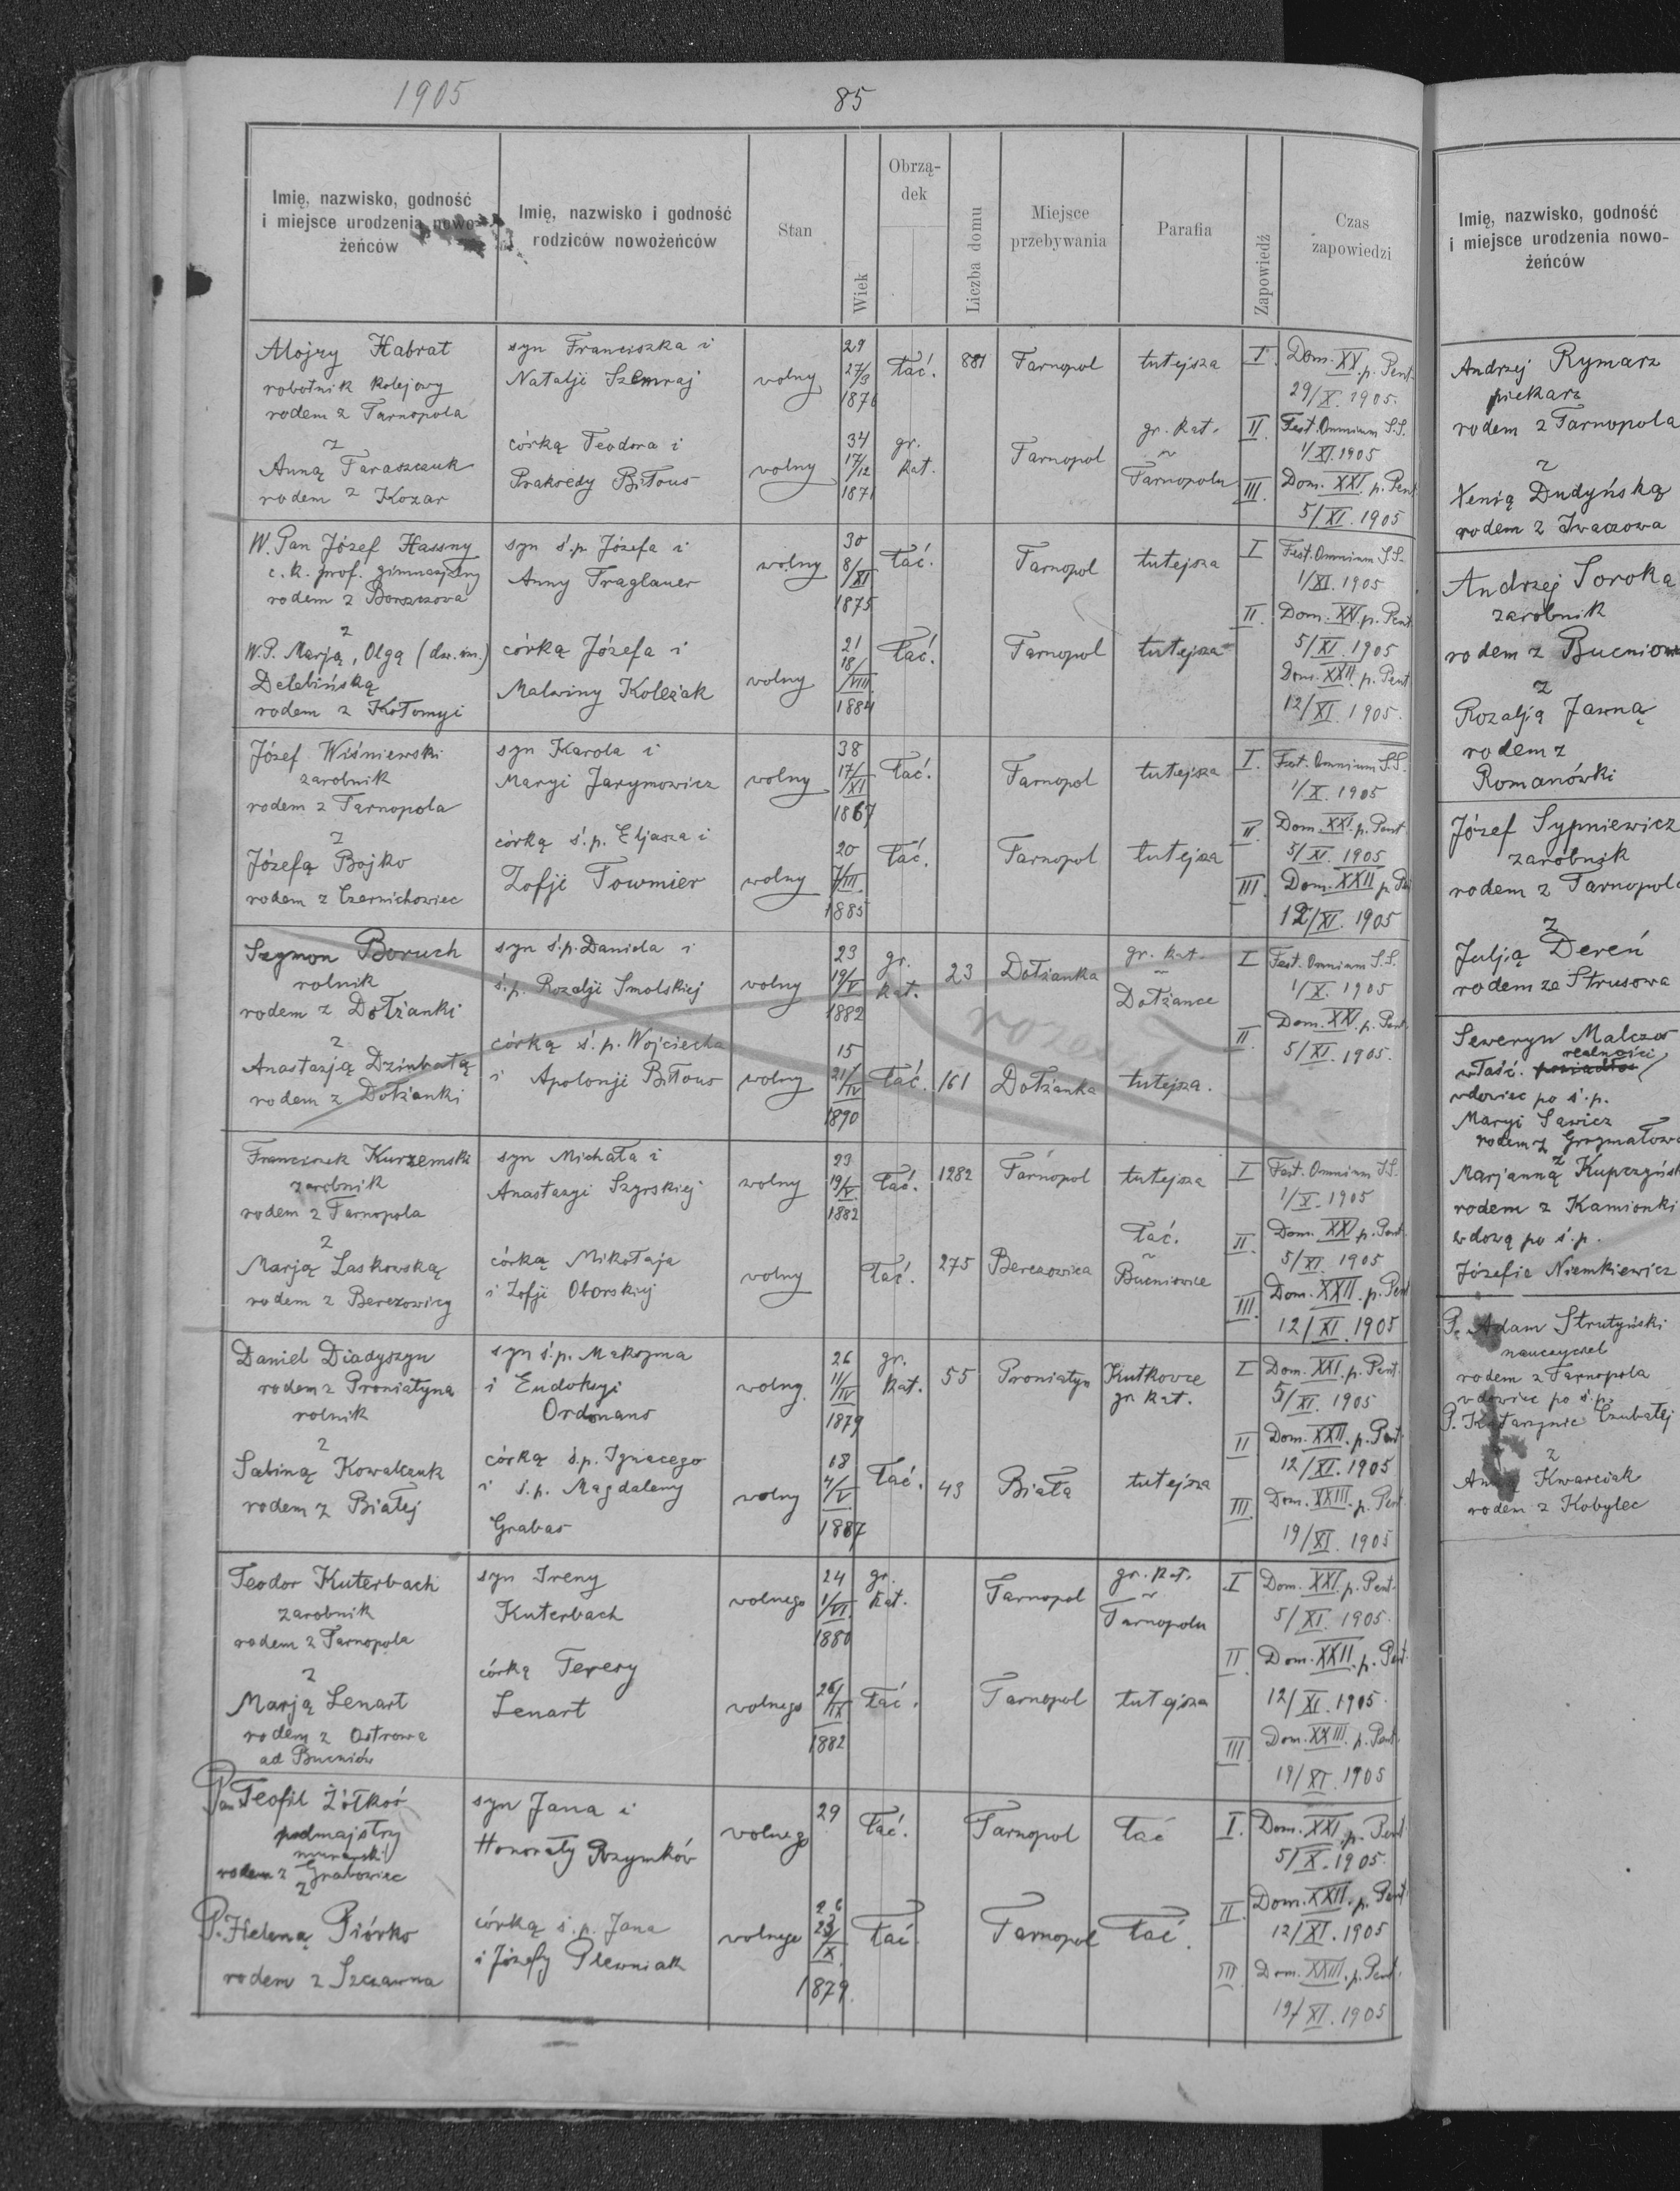 1905
85
Imię, nazwisko, godność
i miejsce urodzenia nowo-
żeńców
Imię, nazwisko i godność
rodziców nowożeńców
Stan
Wiek
Obrzą-
dek
Liczba domu
Miejsce
przebywania
Parafia
Zapowiedź
Czas
zapowiedzi
Alojzy Habrat
robotnik kolejowy
rodem z Tarnopola
syn Franciszka i
Natalji Szemraj
wolny
29
27/3
1876
łać.
881
Tarnopol
tutejsza
I. Dom. XX. p. Pent.
29/X. 1905.
z
Anną Taraszczuk
rodem z Kozar
córką Teodora i
Praksedy Biłous
wolny
34
17/12
1871
gr.
kat.
Tarnopol
gr. kat.
w
Tarnopolu
II. Fest. Omnium S.S.
1/XI. 1905
III. Dom. XXI. p. Pent
5/XI. 1905
W. Pan Józef Hassny
c. k. prof. gimnazjalny
rodem z Borszczowa
syn ś.p. Józefa i
Anny Traglauer
wolny
30
8/XI
1875
łać.
Tarnopol
tutejsza
I Fest. Omnium S.S.
1/XI. 1905
II. Dom. XXI. p. Pent.
5/XI. 1905
z
W.P. Marją, Olgą (dw. im.)
Delebińską
rodem z Kołomyi
córką Józefa i
Malwiny Koleżak
wolny
21
18/VIII
1884
łać.
Tarnopol
tutejsza
Dom. XXII. p. Pent
12/XI. 1905.
Józef Wiśniewski
zarobnik
rodem z Tarnopola
syn Karola i
Maryi Jarymowicz
wolny
38
17/XI
1867
łać.
Tarnopol
tutejsza
I. Fest. Omnium S.S.
1/X. 1905
z
Józefą Bojko
rodem z Czernichowiec
córką ś.p. Eljasza i
Zofji Towmier
wolny
20
7/III.
1885
łać.
Tarnopol
tutejsza
II. Dom. XXI. p. Pent
5/XI. 1905
III. Dom. XXII p.
12/XI. 1905
Szymon Boruch
rolnik
rodem z Dołżanki
syn ś.p. Daniela i
ś.p. Rozalji Smolskiej
wolny
23
19/V
1882
gr.
kat.
23
Dołżanka
gr. kat.
w
Dołżance
I Fest. Omnium S.S.
1/X. 1905
z
Anastazją Dziubatą
rodem z Dołżanki
córką ś.p. Wojciecha
i Apolonji Biłous
wolny
15
21/IV
1890
łać.
161
Dołżanka
tutejsza.
II. Dom. XXI. p. Pent.
5/XI. 1905.
Franciszek Kurzemski
zarobnik
rodem z Tarnopola
syn Michała i
Anastazyi Szyrskiej
wolny
23
19/V.
1882
łać.
1282
Tarnopol
tutejsza
I Fest. Omnium S.S.
1/X. 1905
z
Marją Laskowską
rodem z Berezowicy
córką Mikołaja
i Zofji Oborskiej
wolny
łać.
275
Berezowica
łać.
w
Bucniowie
II. Dom. XXI. p. Pent.
5/XI. 1905
III. Dom. XXII. p. Pent
12/XI. 1905
Daniel Diadyszyn
rodem z Proniatyna
rolnik
syn ś.p. Maksyma
i Eudokyi
Ordonans
wolny.
26
11/IV
1879
gr.
kat.
55
Proniatyn
Kutkowce
gr kat.
I Dom. XXI. p. Pent.
5/XI. 1905
z
Sabiną Kowalczuk
rodem z Białej
córką ś.p. Ignacego
i ś.p. Magdaleny
Grabas
wolny
18
4/V
1887
łać.
43
Biała
tutejsza
II Dom. XXII. p. Pent.
12/XI. 1905
III. Dom. XXIII. p. Pent
19/XI. 1905
Teodor Kuterbach
zarobnik
rodem z Tarnopola
syn Ireny
Kuterbach
wolnego
24
1/VI.
1880
gr.
kat.
Tarnopol
gr. kat.
w
Tarnopolu
I Dom. XXI. p. Pent.
5/XI. 1905.
z
Marją Lenart
rodem z Ostrowa
ad Bucniów
córką Teresy
Lenart
wolnego
26/IX
1882
łać.
Tarnopol
tutejsza
II Dom. XXII. p. Pent.
12/XI. 1905.
III. Dom. XXIII. p. Pent.
19/XI. 1905
Pan Teofil Żółkoś
podmajstry
murarski
rodem z Grabowiec
syn Jana i
Honoraty Rozymków
wolnego
29
łać.
Tarnopol
łać
I. Dom. XXI. p. Pent
5/X. 1905.
z
P. Heleną Piórko
rodem z Szczawna
córką ś.p. Jana
i Józefy Plewniak
wolnego
26
23/X.
1879.
łać
Tarnopol
łać.
II. Dom. XXII. p. Pent.
12/XI. 1905
III. Dom. XXIII. p. Pent.
19/XI. 1905
Imię, nazwisko, godność
i miejsce urodzenia nowo-
żeńców
Andrzej Rymarz
piekarz
rodem z Tarnopola
z
Xenią Dudyńską
rodem z Iwaczowa
Andrzej Soroka
zarobnik
rodem z Bucniowa
z
Rozalją Jawną
rodem z
Romanówki
Józef Sypniewicz
zarobnik
rodem z Tarnopola
z
Julją Dereń
rodem ze Strusowa
Seweryn Malczos
realności
właśc.
wdowiec po ś.p.
Maryi Sawicz
rodem z Grzymałowa
z
Marjanną Kupczyńsk
rodem z Kamionki
wdową po ś.p.
Józefie Niemkiewicz
P. Adam Strutyński
nauczyciel
rodem z Tarnopola
wdowiec po ś.p.
P. Katarzynie Czubatej
z
Anną Kwarciak
rodem z Kobylec